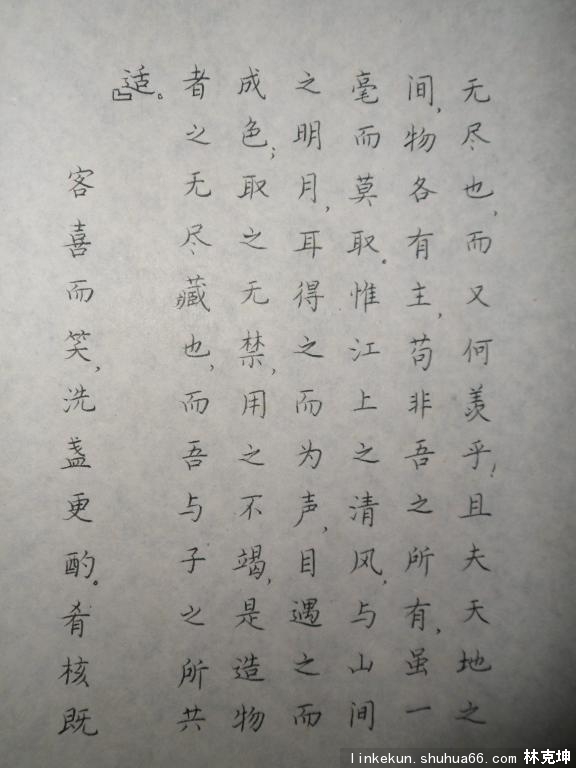 无尽也，而又何羡乎！且夫天地之
间，物各有主，苟非吾之所有，虽一
毫而莫取。惟江上之清风，与山间
之明月，耳得之而为声，目遇之而
成色；取之无禁，用之不竭，是造物
者之无尽藏也，而吾与子之所共
适。』
客喜而笑，洗盏更酌。肴核既
linkekun.shuhua66.com 林克坤